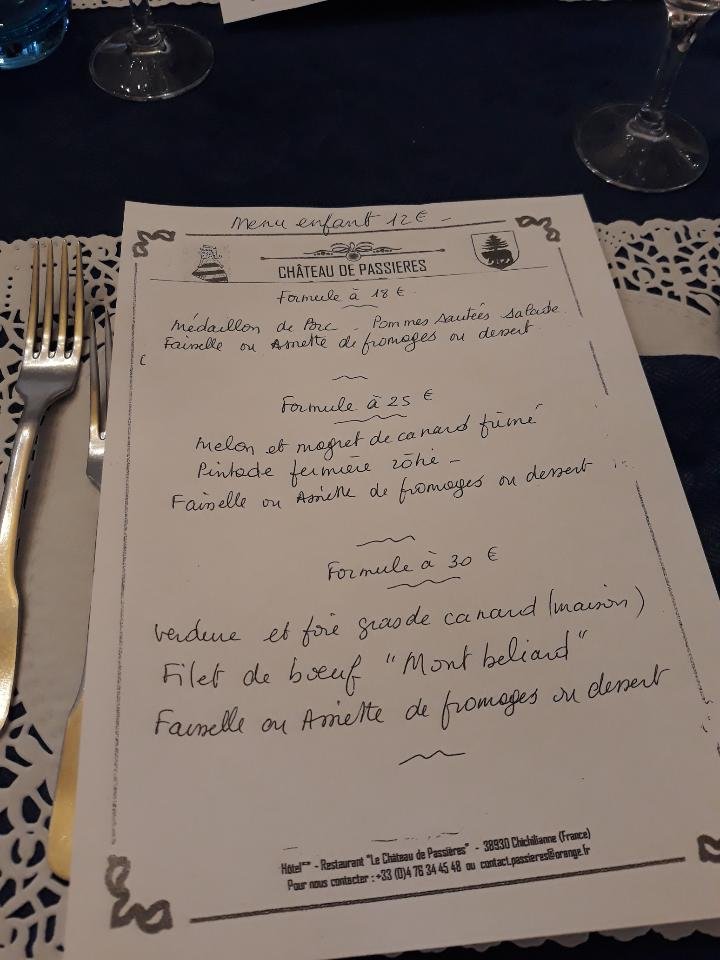 Menu enfant 12€ -
CHÂTEAU DE PASSIERES
Formule à 18 €
Médaillon de Porc - Pommes sautées salade
Faisselle ou Assiette de fromages ou dessert
Formule à 25 €
Melon et magret de canard fumé
Pintade fermière rôtie -
Faisselle ou Assiette de fromages ou dessert
Formule à 30 €
verdure et foie gras de canard (maison)
Filet de boeuf "Mont beliard"
Faisselle ou Assiette de fromages ou dessert
Hôtel** - Restaurant "Le Château de Passières" - 38930 Chichilianne (France)
Pour nous contacter : +33 (0)4 76 34 45 48 ou contact.passieres@orange.fr